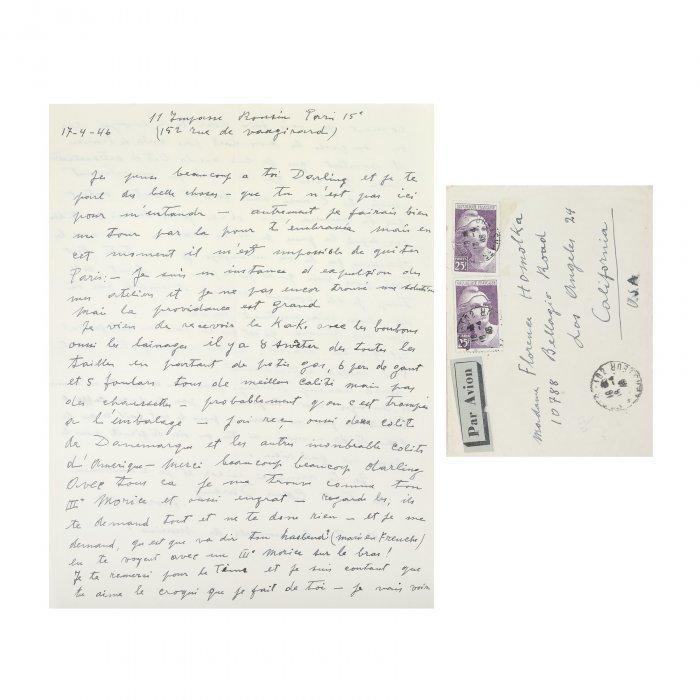 11 Impasse Ronsin Paris 15e
17-4-46 (152 rue de vaugirard)
Je pense beaucoup a toi Darling et je te
parl des belle choses - que tu n'est pas ici
pour m'entandr - autrement je fairais bien
un tour par la pour t'embrasse mais en
cet moment il m'est impossible de quiter
Paris: - Je suis in instance d'expulsion des
mes atelier et je ne pas encor trouvé une solution
mais la providance est grand
Je vien de recevoir la KaKi avec les bonbons
ousi les lainages il y a 8 des toutes les
tailles en partant de petis gas, 6 per de gant
et 5 foulars tous de meillon calité mais pas
des chaussettes - probablement qu'on c'est trompés
a l'embalage - J'ai reçu ousi deux colit
de Danemarque et les autres inombrable colits
d'Amérique - merci beaucoup beaucoup darling
Avec tous ca je me trouve comme ton
III° Morice et ousi engrat - regarde les, ils
te demand tout et ne te done rien - et je me
demand, qu'est que va dir ton hasbend? (mais en French)
en te voyent avec un III° Morice sur le bras!
Je te remersi pour la et je suis contant que
tu aime le croqui que je fait de toi - je vais voir
REPUBLIQUE FRANÇAISE
25F
REPUBLIQUE FRANÇAISE
25F
Par Avion
Madame Florence Homolka
10788 Bellagio Road
Los Angeles 24
California
USA